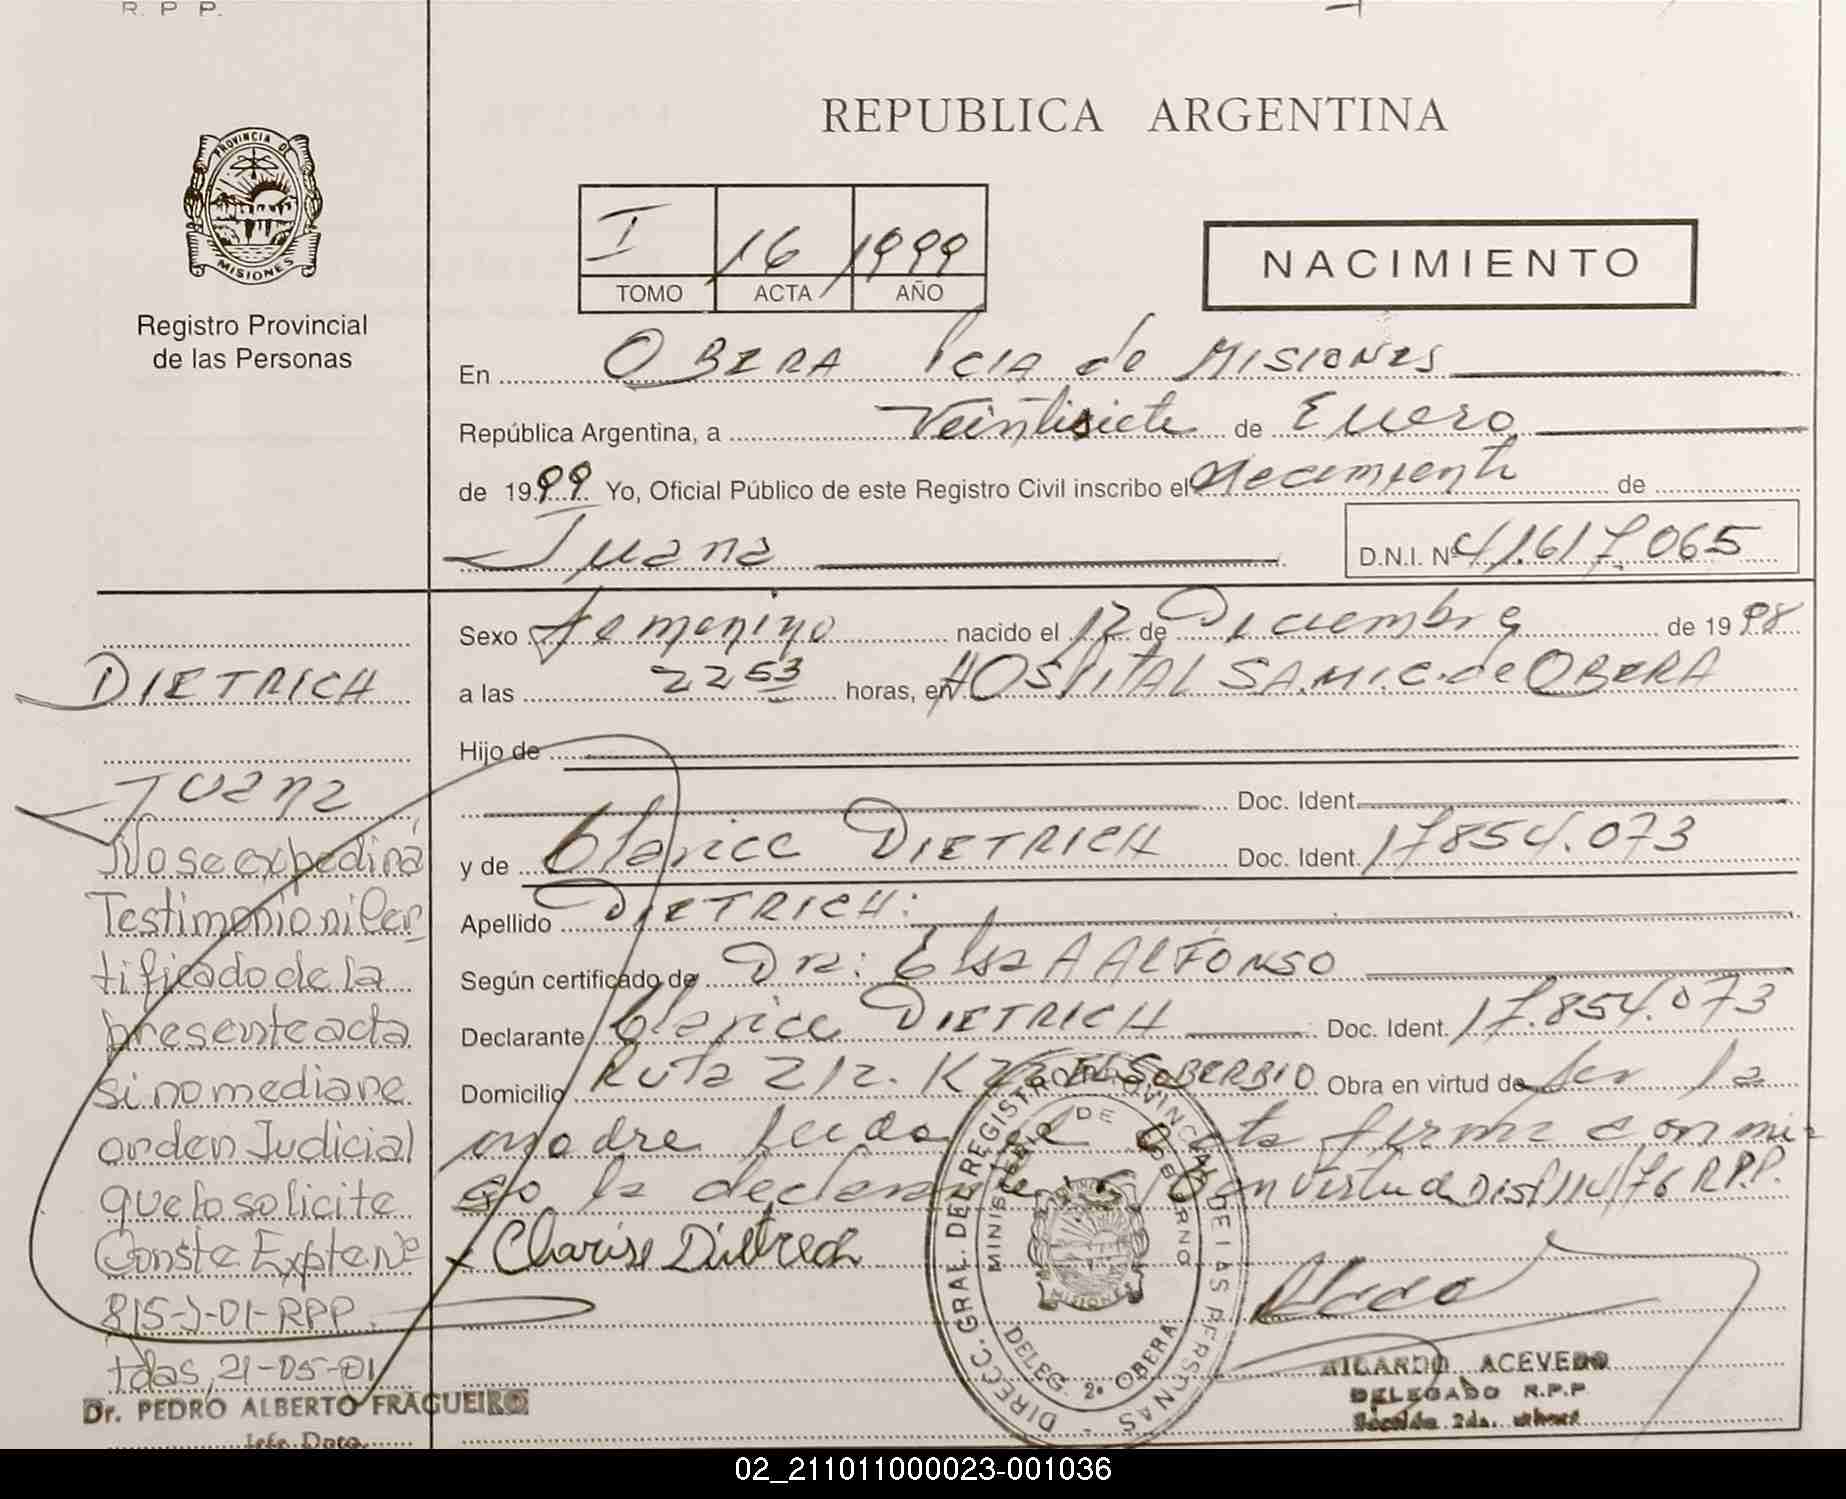 R. P P.
PROVINCIA DE
MISIONES
Registro Provincial
de las Personas
REPUBLICA ARGENTINA
I 16 1999
TOMO ACTA AÑO
NACIMIENTO
En OBERA Pcia de MISIONES
República Argentina, a Veintisiete de Enero
de 1999 Yo, Oficial Público de este Registro Civil inscribo el Nacimiento de
Juana D.N.I. Nº 41.617.065
Sexo femenino nacido el 12 de Diciembre de 1998
a las 22 53 horas, en HOSPITAL SA.M.I.C. de OBERA
Hijo de
Doc. Ident.
y de Clarice DIETRICH Doc. Ident. 17854.073
Apellido DIETRICH:
Según certificado de Dra: Elsa A ALFONSO
Declarante Clarice DIETRICH Doc. Ident. 17.854.073
Domicilio Ruta 212. K EL SOBERBIO Obra en virtud de ser la
madre leida el acta firma conmi-
go la declarante en virtud DISP 114/76 R.P.P.
Clarise Dietrech
DIETRICH
Juana
No se expedirá
Testimonio ni Cer
tificado de la
presente acta
si no mediare
orden Judicial
que lo solicite
Conste Expte Nº
815-J-01-RPP.
Pdas, 21-05-01
Dr. PEDRO ALBERTO FRAGUEIRO
Jefe Dpto.
DIRECC. GRAL. DEL REGISTRO PROVINCIAL DE LAS PERSONAS
MINISTERIO DE GOBIERNO
MISIONES
DELEG. 2ª OBERA
RICARDO ACEVEDO
DELEGADO R.P.P
02_211011000023-001036